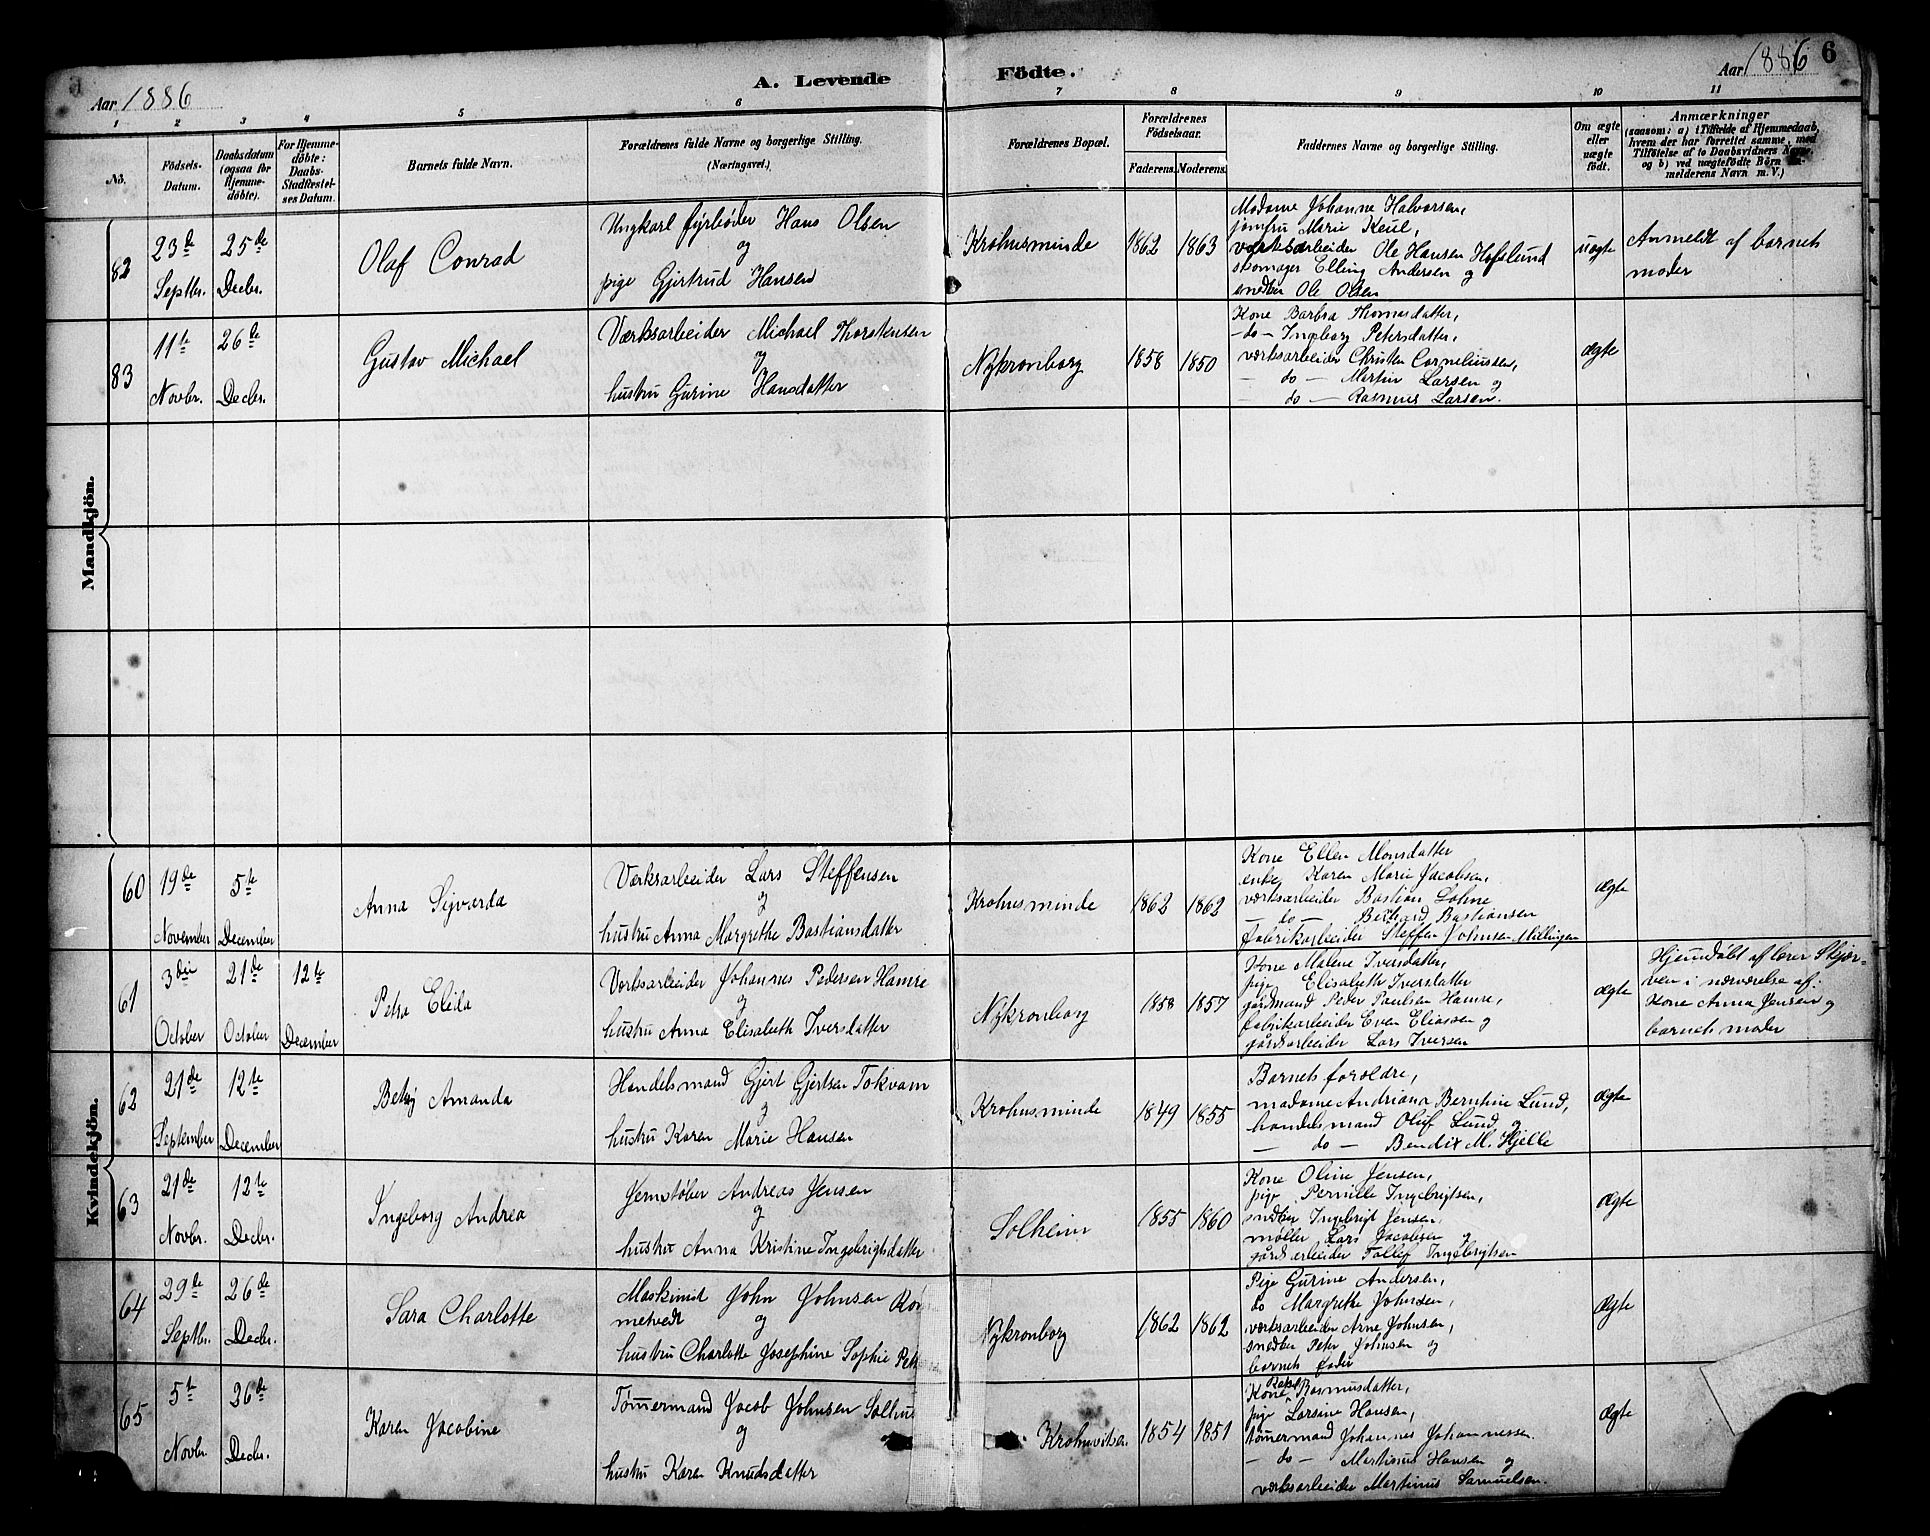 Aar 1886
A. Levende Födte.
Aar 1886
6
1 2 3 4 5 6 7 8 9 10 11
No.
Födsels-
Datum.
Daabsdatum
(ogsaa for
Hjemme-
døbte).
For Hjemme-
døbte:
Daabs-
Stadfæstel-
ses Datum.
Barnets fulde Navn.
Forældrenes fulde Navne og borgerlige Stilling.
(Næringsvei.)
Forældrenes Bopæl.
Forældrenes
Födselsaar.
Faderens. Moderens.
Faddernes Navne og borgerlige Stilling.
Om ægte
eller
uægte
født.
Anmærkninger
(saasom: a) i Tilfælde af Hjemmedaab,
hvem der har forrettet samme, med
Tilföielse af to Daabsvidners Navne
og b) ved uægtefödte Börn
melderens Navn m. V.)
Mandkjön.
82
23de
Septbr.
25de
Decbr.
Olaf Conrad
Ungkarl fyrbøder Hans Olsen
og
pige Gjertrud Hansen
Krohusminde
1862
1863
Madame Johanne Halvorsen,
jomfru Marie Keul,
værksarbeider Ole Hansen Hofslund
skomager Elling Andersen og
snedker Ole Olsen
uægte
Anmeldt af barnets
moder
83
11te
Novbr.
26de
Decbr.
Gustav Michael
Værksarbeider Michael Thorstensen
og
hustru Gurine Hansdatter
Nykronborg
1858
1850
Kone Barbra Thomasdatter,
- do - Ingeborg Petersdatter,
værksarbeider Christen Corneliussen,
- do - Martin Larsen og
- do - Rasmus Larsen.
ægte
Kvindekjön.
60
19de
November
5te
December
Anna Sigvarda
Værksarbeider Lars Steffensen
og
hustru Anna Margrethe Bastiansdatter
Krohusminde
1862
1862
Kone Ellen Monsdatter
enke Karen Marie Jacobsen,
værksarbeider Bastian Lohne
- do - Berhard Bastiansen
fabriksarbeider Steffen Johnsen Millingen
ægte
61
3die
October
21de
October
12te
December
Petra Elida
Værksarbeider Johannes Pedersen Hamre
og
hustru Anna Elisabeth Iversdatter
Nykronborg
1858
1857
Kone Malene Iversdatter
pige Elisabeth Iversdatter
gårdmand Peder Paulsen Hamre,
fabrikarbeider Even Eliassen og
gårdsarbeider Lars Iversen
ægte
Hjemdøbt af lærer Skjær-
ven i nærværelse af:
Kone Anna Jensen og
barnets moder
62
21de
September
12te
December
Betsy Amanda
Handelsmand Gjert Gjertsen Tokvam
og
hustru Karen Marie Hansen
Krohusminde
1849
1855
Barnets forældre,
madame Andriana Berntine Lund,
handelsmand Oluf Lund og
- do - Bendix M. Hjelle
ægte
63
21de
Novbr.
12te
Decbr.
Ingeborg Andrea
Jernstøber Andreas Jensen
og
hustru Anna Kristine Ingebrigtsdatter
Solheim
1855
1860
Kone Oline Jensen,
pige Pernille Ingebrigtsen,
snedker Ingebrigt Jensen,
møller Lars Jacobsen og
gårdsarbeider Tollef Ingebrigtsen
ægte
64
29de
Septbr.
26de
Decbr.
Sara Charlotte
Maskinist John Johnsen
metvedt og
hustru Charlotte Josephine Sophie
Nykronborg
1862
1862
Pige Gurine Andersen,
do Margrethe Johnsen,
værksarbeider Arne Johnsen,
snedker Peter Johnsen og
barnets fader
ægte
65
5te
Novbr.
26de
Decbr.
Karen Jacobine
Tømmermand Jacob Johnsen
og
hustru Karen Knudsdatter
Krohnviken
1854
1851
Kone Rasmusdatter,
pige Larsine Hansen,
tømmermand Johannes Johannessen.
- do - Martinus Hansen og
værksarbeider Martinus Samuelsen.
ægte